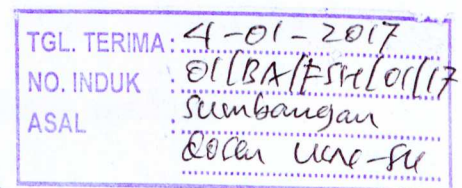 TGL. TERIMA : 4-01-2017
NO. INDUK : 01/BA/FSH/01/17
ASAL : Sumbangan
Dosen